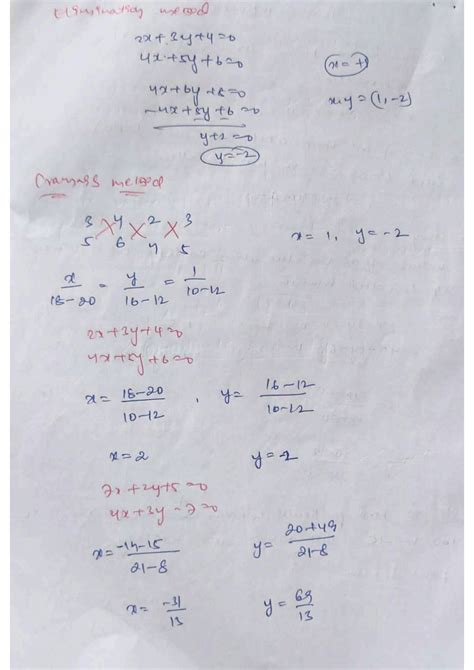 Elimination method
2x+3y+4=0
4x+5y+6=0
x=+1
4x+6y+8=0
x,y=(1,-2)
-4x+5y+6=0
y+2=0
y=-2
method
3 4 2 3
5 6 4 5
x=1, y=-2
x/18-20 = y/16-12 = 1/10-12
2x+3y+4=0
4x+5y+6=0
x= 18-20/10-12 , y= 16-12/10-12
x=2 y=2
7x+2y+5=0
4x+3y-7=0
x= -14-15/21-8 y= 20+49/21-8
x= -31/13 y= 69/13